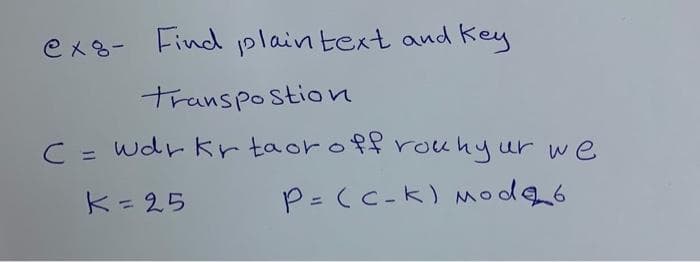 ex8- Find plaintext and key
transpostion
C = wdr kr taor off rouhy ur we
K = 25 P = (C-K) mod 26